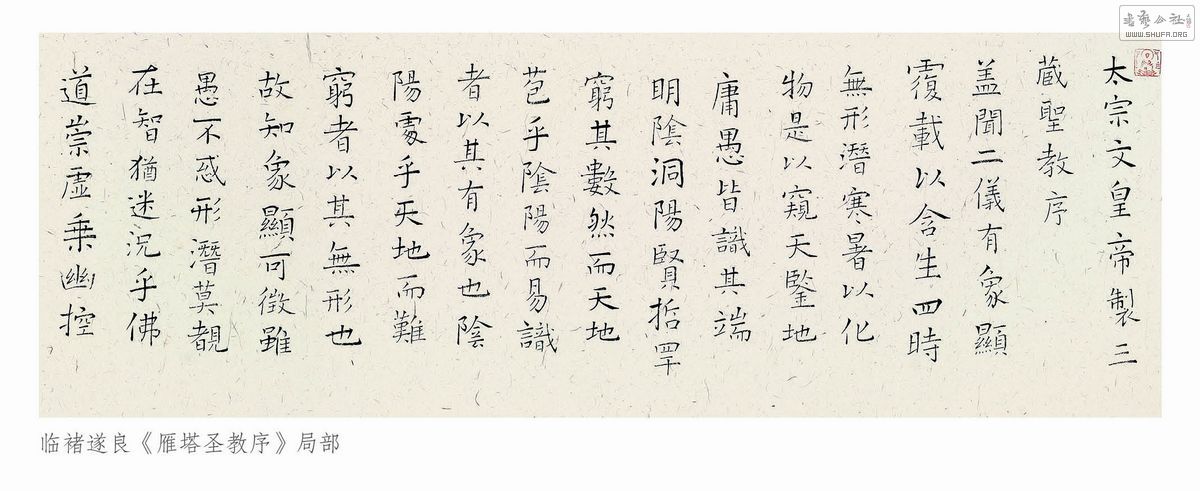 太宗文皇帝製三
蔵聖教序
盖聞二儀有象顯
覆載以含生四時
無形潛寒暑以化
物是以窺天鑒地
庸愚皆識其端
明陰洞陽賢哲罕
窮其數然而天地
苞乎陰陽而易識
者以其有象也陰
陽處乎天地而難
窮者以其無形也
故知象顯可徵雖
愚不惑形潛莫覩
在智猶迷況乎佛
道崇虛乗幽控
临褚遂良《雁塔圣教序》局部
书艺公社
WWW.SHUFA.ORG